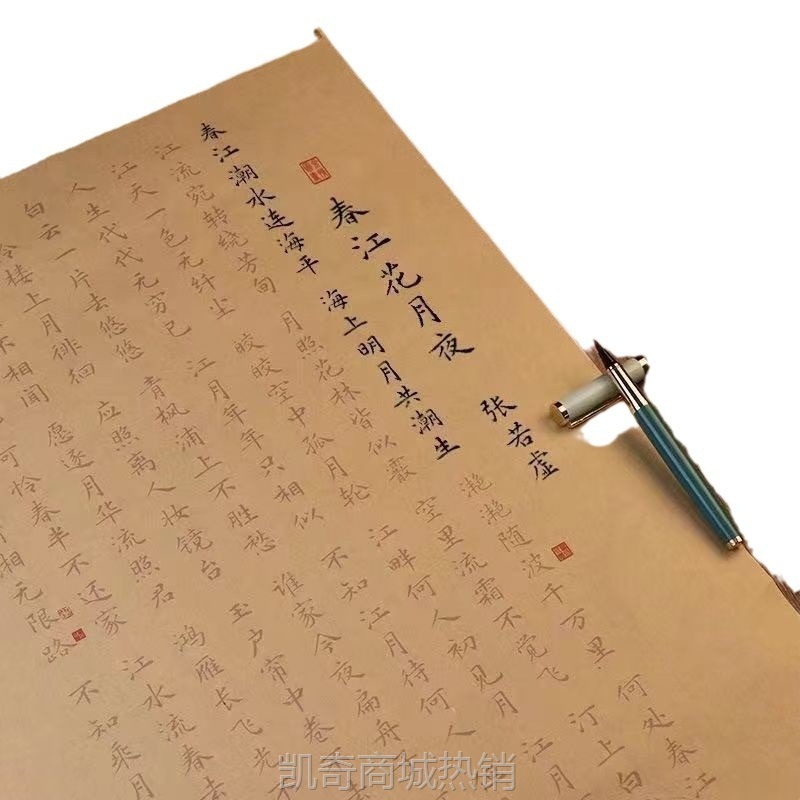 春江花月夜 张若虚
春江潮水连海平 海上明月共潮生 滟滟随波千万里 何处春江
江流宛转绕芳甸 月照花林皆似霰 空里流霜不觉飞 汀上白
江天一色无纤尘 皎皎空中孤月轮 江畔何人初见月 江月
人生代代无穷已 江月年年只相似 不知江月待何人
白云一片去悠悠 青枫浦上不胜愁 谁家今夜扁舟
楼上月徘徊 应照离人妆镜台 玉户帘中卷
不相闻 愿逐月华流照君 鸿雁长飞光不
可怜春半不还家 江水流春去
湘无限路 不知乘月
凯奇商城热销